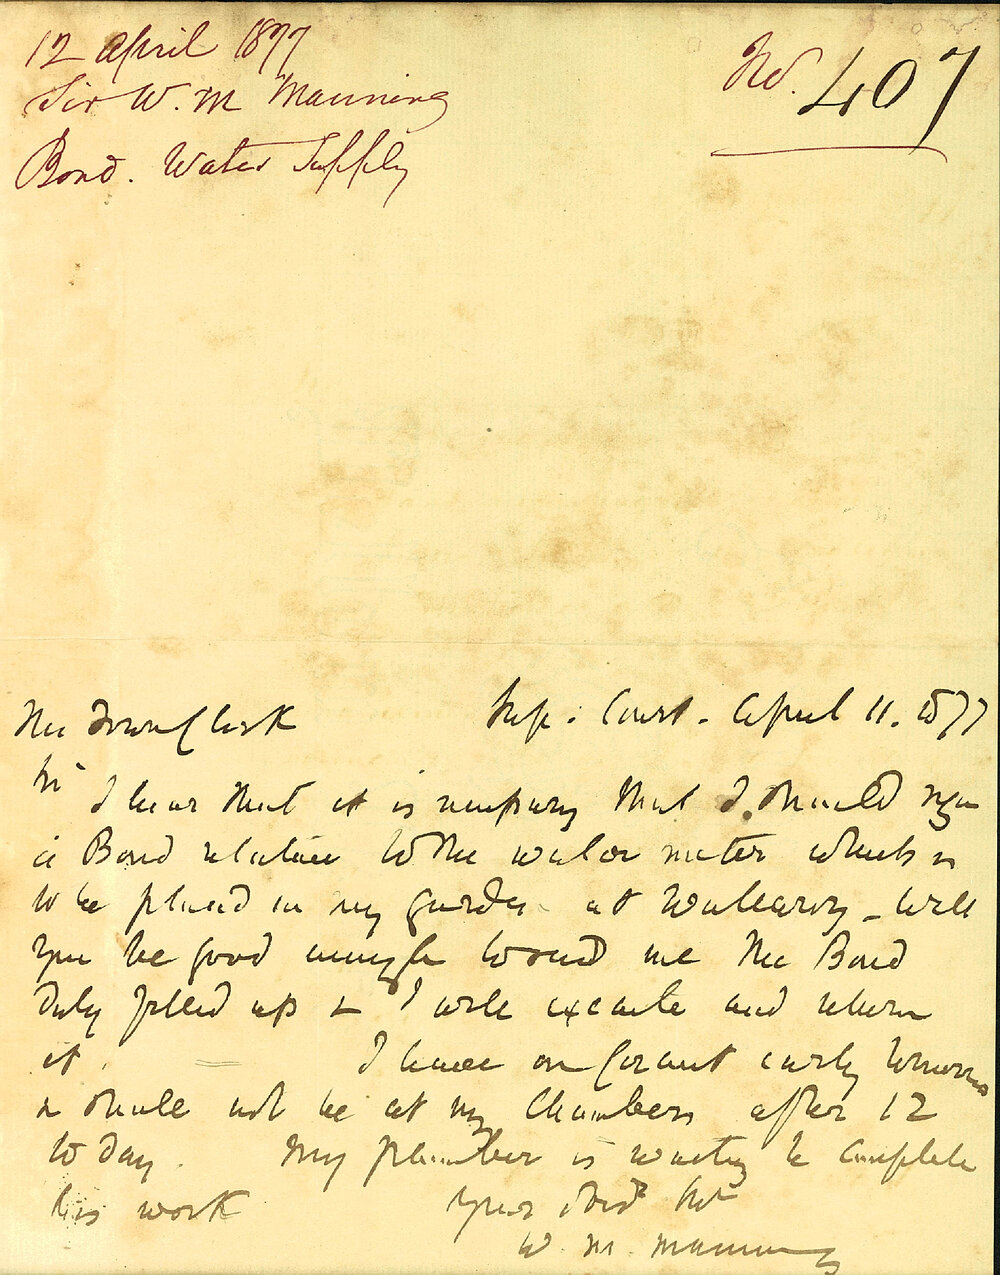 12 April 1877
Sir W. M Manning
Bond. Water Supply
No. 407
The Town Clerk
Sup. Court. April 11. 1877
Sir
I hear that it is necessary that I should sign
a Bond relative to the water meter which is
to be placed in my garden at Wallaroy - Will
you be good enough to send me the Bond
duly filled up & I will execute and return
it. I leave on Circuit early tomorrow
& shall not be at my Chambers after 12
to day. My plumber is waiting to complete
his work
Your obedt Svt
W. M. Manning